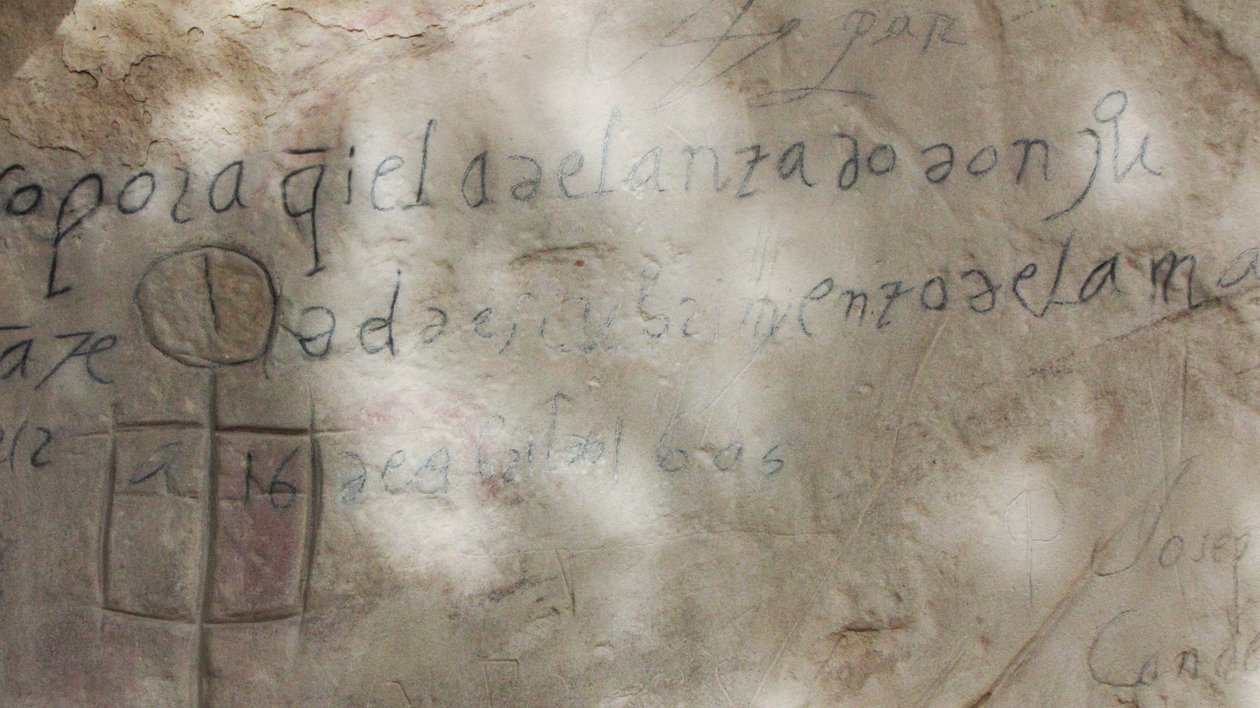 par
so por a q̄i el adelantado don ju
ate del descubrimiento de la ma
a 16 de abril del 605
Josep
Cande